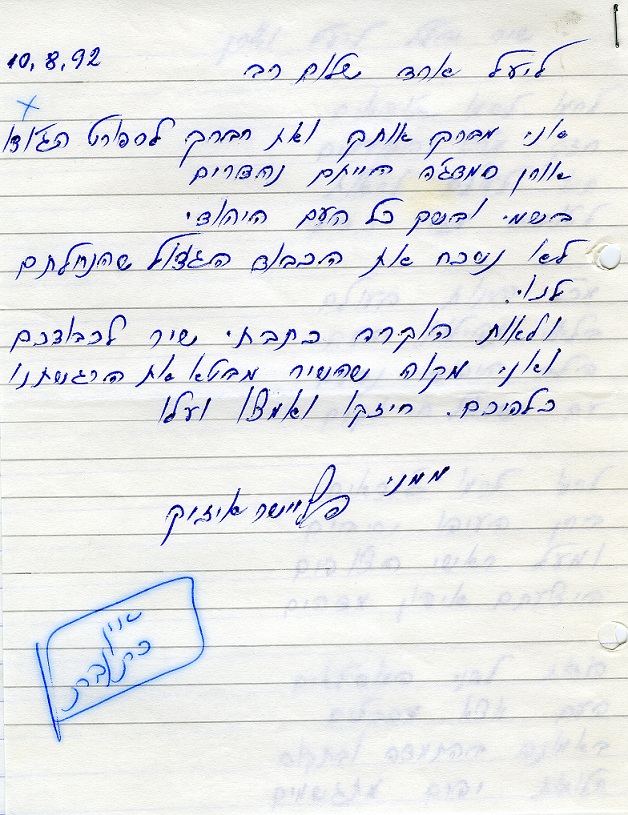 10.8.92
ליעל ארד שלום רב
אני מברך אותך ואת חברך לספורט הג'ודו
אורן סמדג'ה הייתם נהדרים
בישמי ובשם כל העם היהודי
לא נשכח את הכבוד הגדול שהנחלתם
לנו.
ולאות הוקרה כתבתי שיר לכבודכם
ואני מקוה שהשיר מבטא את הרגשתנו
כלפיכם. חיזקו ואמצו ועלו
ממני
איזיק
אין
כתובת